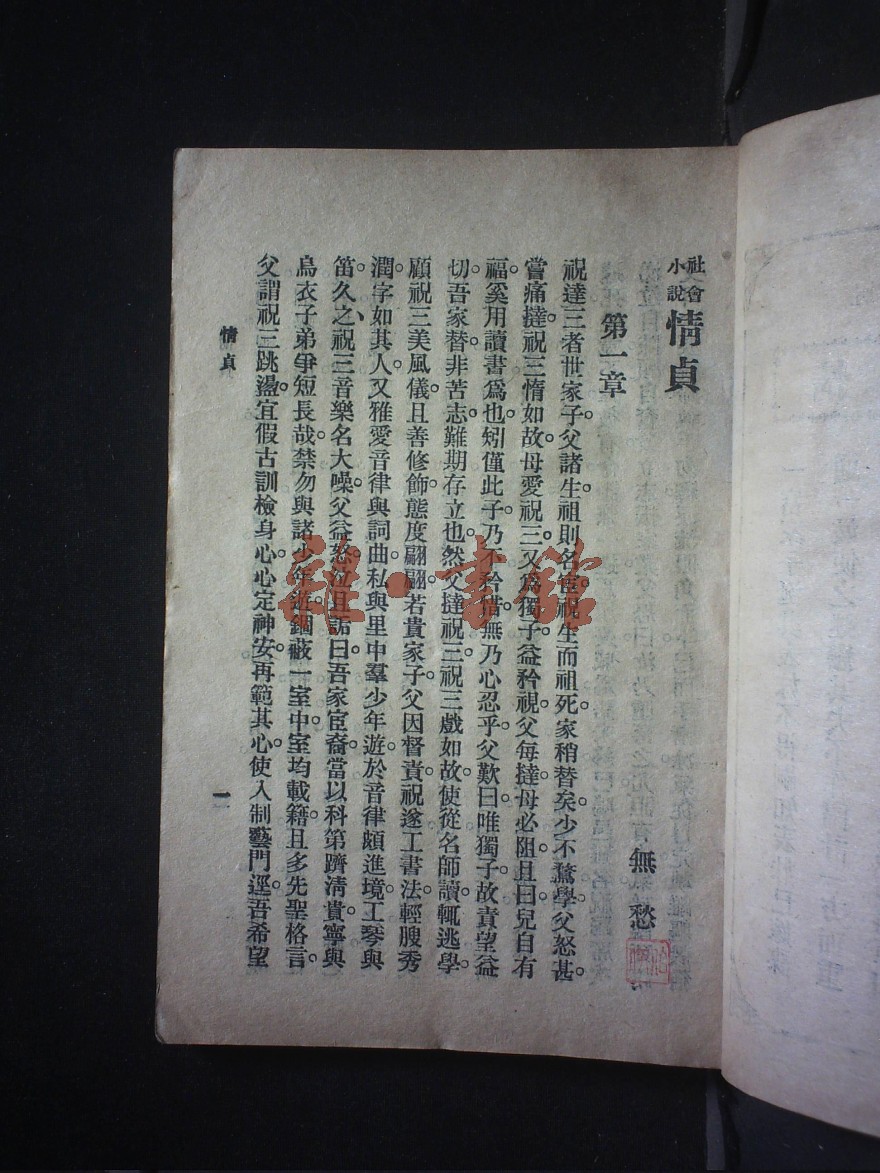 社會小說 情貞
無愁
第一章
祝達三者世家子父諸生祖則名宦祝生而祖死家稍替矣。少不騖學父怒甚。
嘗痛撻祝三惰如故母愛祝三又爲獨子益矜視。父每撻母必阻且曰兒自有
福。奚用讀書爲也矧僅此子乃不矜惜無乃心忍乎父歎曰唯獨子故責望益
切。吾家替非苦志難期存立也。然父撻祝三。祝三戲如故。使從名師讀。輒逃學
顧祝三美風儀。且善修飾。態度翩翩。若貴家子。父因督責。祝遂工書法。輕膄秀
潤。字如其人。又雅愛音律與詞曲。私與里中羣少年遊。於音律頗進境。工琴與
笛。久之、祝三音樂名大噪。父益怒。泣且詬曰。吾家宦裔。當以科第躋淸貴。寧與
烏衣子弟爭短長哉。禁勿與諸少年遊。錮蔽一室中。室均載籍。且多先聖格言。
父謂祝三跳盪。宜假古訓檢身心。心定神安。再範其心。使入制藝門逕。吾希望
情貞
一
雜·書館